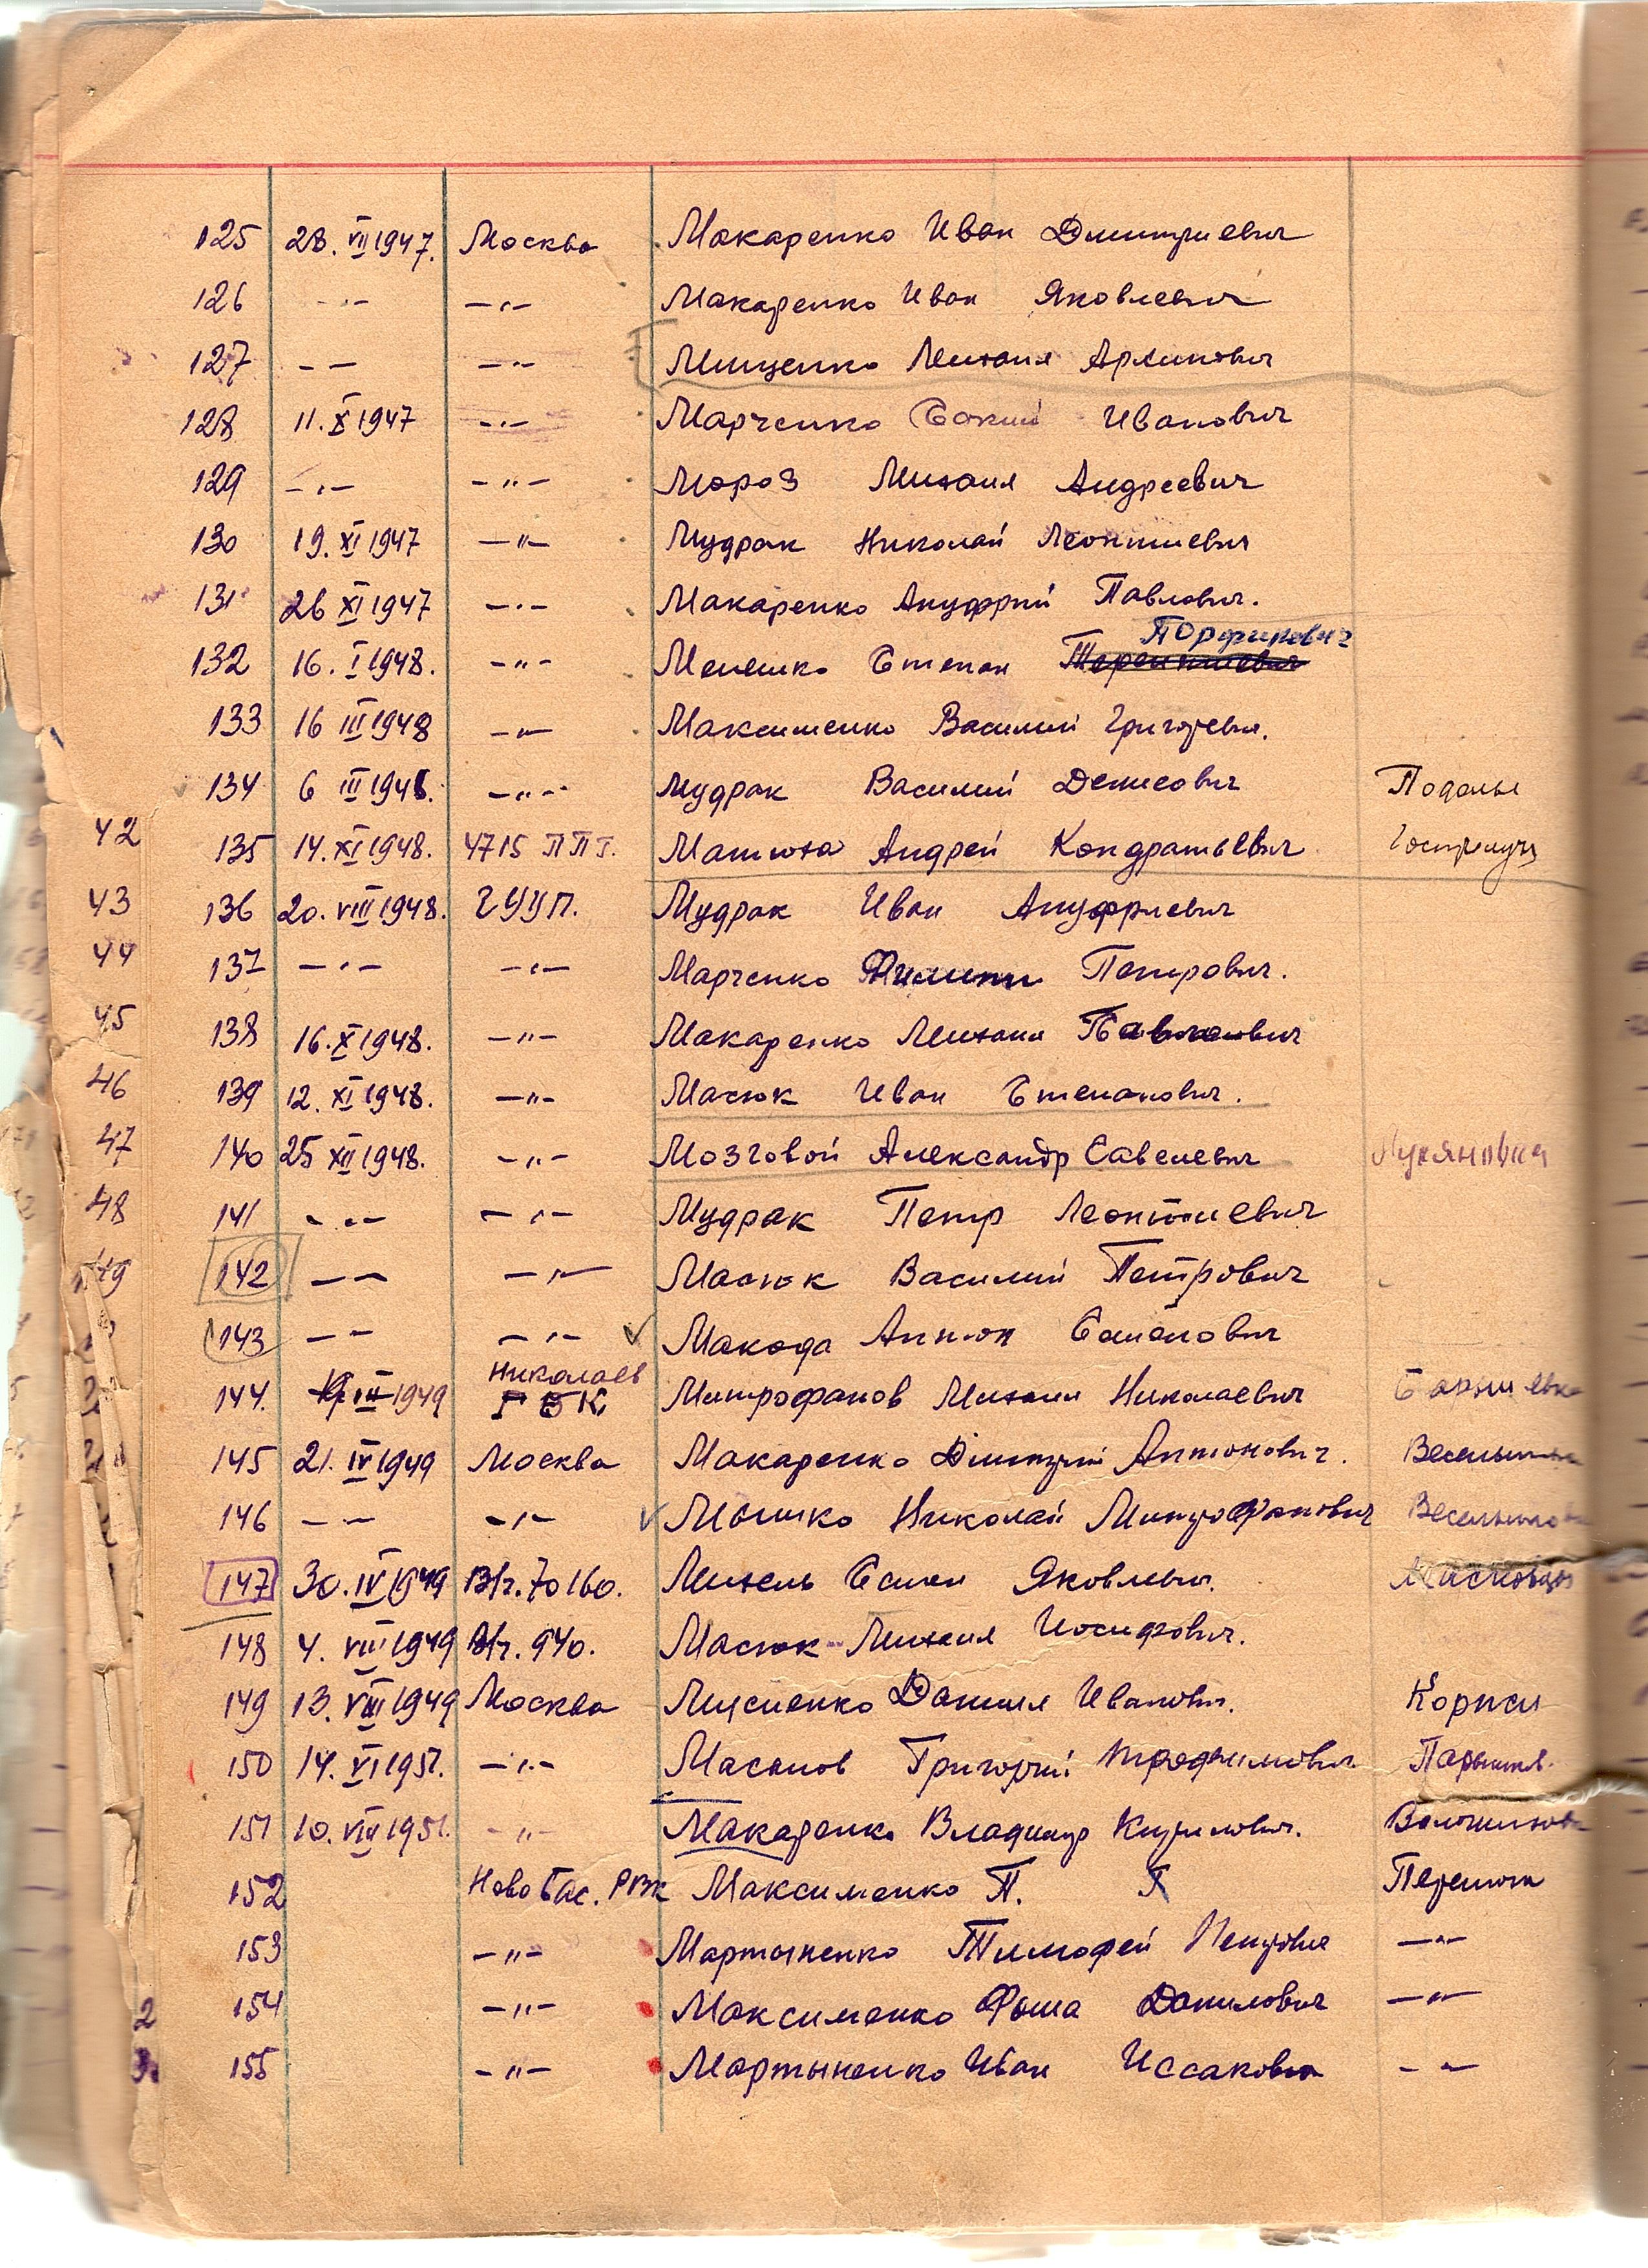 125 28. VII 1947. Москва Макаренко Иван Дмитриевич
126 -"- -"- Макаренко Иван Яковлевич
127 - - -"- Мищенко Михаил Архипович
128 11. X 1947 -"- Марченко Иванович
129 -"- -"- Мороз Михаил Андреевич
130 19. XI 1947 -"- Мудрак Николай Леонтиевич
131 26 XI 1947 -"- Макаренко Ануфрий Павлович.
Порфирович
132 16. I 1948. -"- Мелешко Степан Терентиевич
133 16 III 1948 -"- Максименко Василий Григорьевич.
134 6 III 1948. -"- Мудрак Василий Денисович Подолы
42 135 14. XI 1948. 4715 ППГ. Матюха Андрей Кондратьевич
43 136 20. VIII 1948. ГУУП. Мудрак Иван Ануфриевич
44 137 -"- -"- Марченко Филипп Петрович.
45 138 16. X 1948. -"- Макаренко Михаил Павлович
46 139 12. XI 1948. -"- Масюк Иван Степанович.
47 140 25 XII 1948. -"- Мозговой Александр Савелевич Лукяновка
48 141 -"- -"- Мудрак Петр Леонтиевич
49 142 - - -"- Масюк Василий Петрович
143 - - -"- Макода Антон Семенович
Николаев
144. 19 III 1949 Г В К. Митрофанов Михаил Николаевич
145 21. IV 1949 Москва Макаренко Дмитрий Антонович.
146 - - -"- Мышко Николай Митрофанович
147 30. IV 1949 В/ч. 70160. Михель Семен Яковлевич.
148 4. VIII 1949 В/ч. 940. Масюк Михаил Иосифович.
149 13. VIII 1949 Москва Мусиенко Данил Иванович. Коржи
150 14. VI 1951. -"- Григорий Трофимович
151 10. VIII 1951. -"- Макаренко Владимир Кирилович.
152 Ново Бас. РВК Максименко П.
153 -"- Мартыненко Тимофей Петрович -"-
2 154 -"- Максименко Фома Данилович -"-
3 155 -"- Мартыненко Иван Иссакович - -